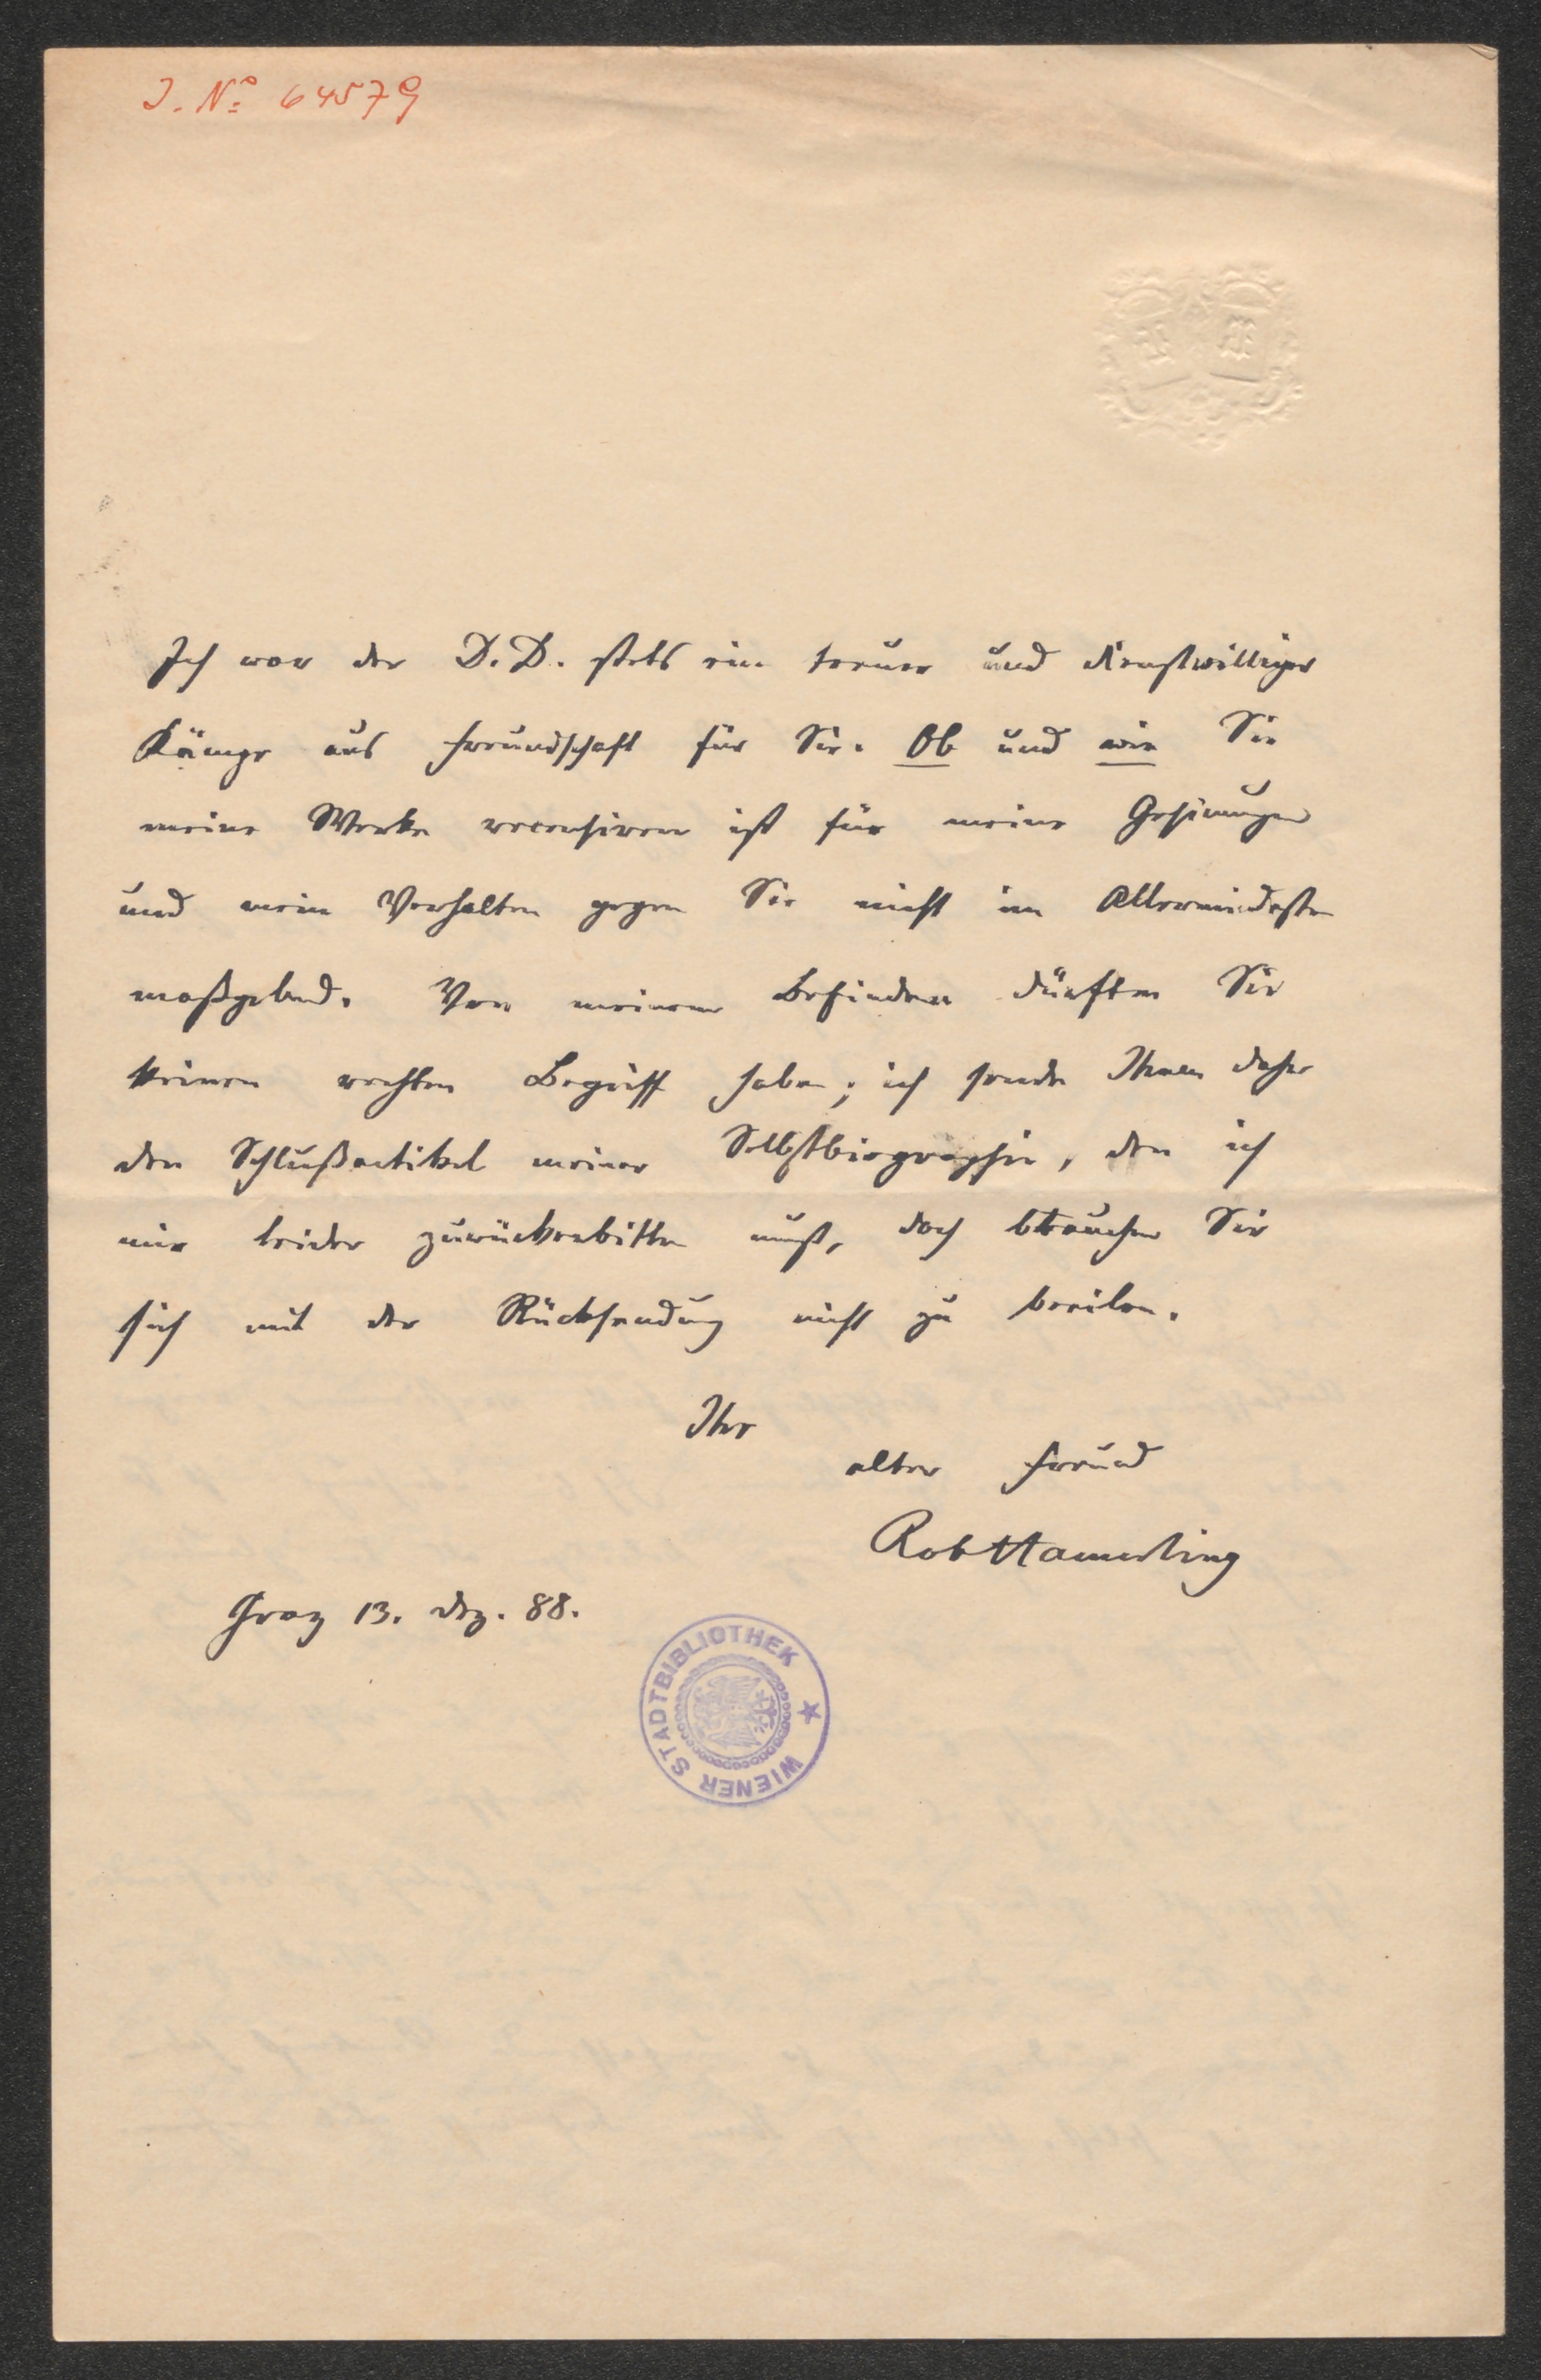 J. No 64579
Ich war der D. D. stets ein treuer und dienstwilliger
Kämpe aus Freundschaft für Sie. Ob und wie Sie
meine Werke recensiren ist für meine Gesinnungen
und mein Verhalten gegen Sie nicht im Allermindesten
maßgebend. Von meinem Befinden dürften Sie
keinen rechten Begriff haben; ich sende Ihnen daher
den Schlußartikel meiner Selbstbiographie, den ich
mir leider zurückerbitten muß, doch brauchen Sie
sich mit der Rücksendung nicht zu beeilen.
Ihr
alter Freund
Rob Hamerling
Graz 13. Dez. 88.
WIENER STADTBIBLIOTHEK